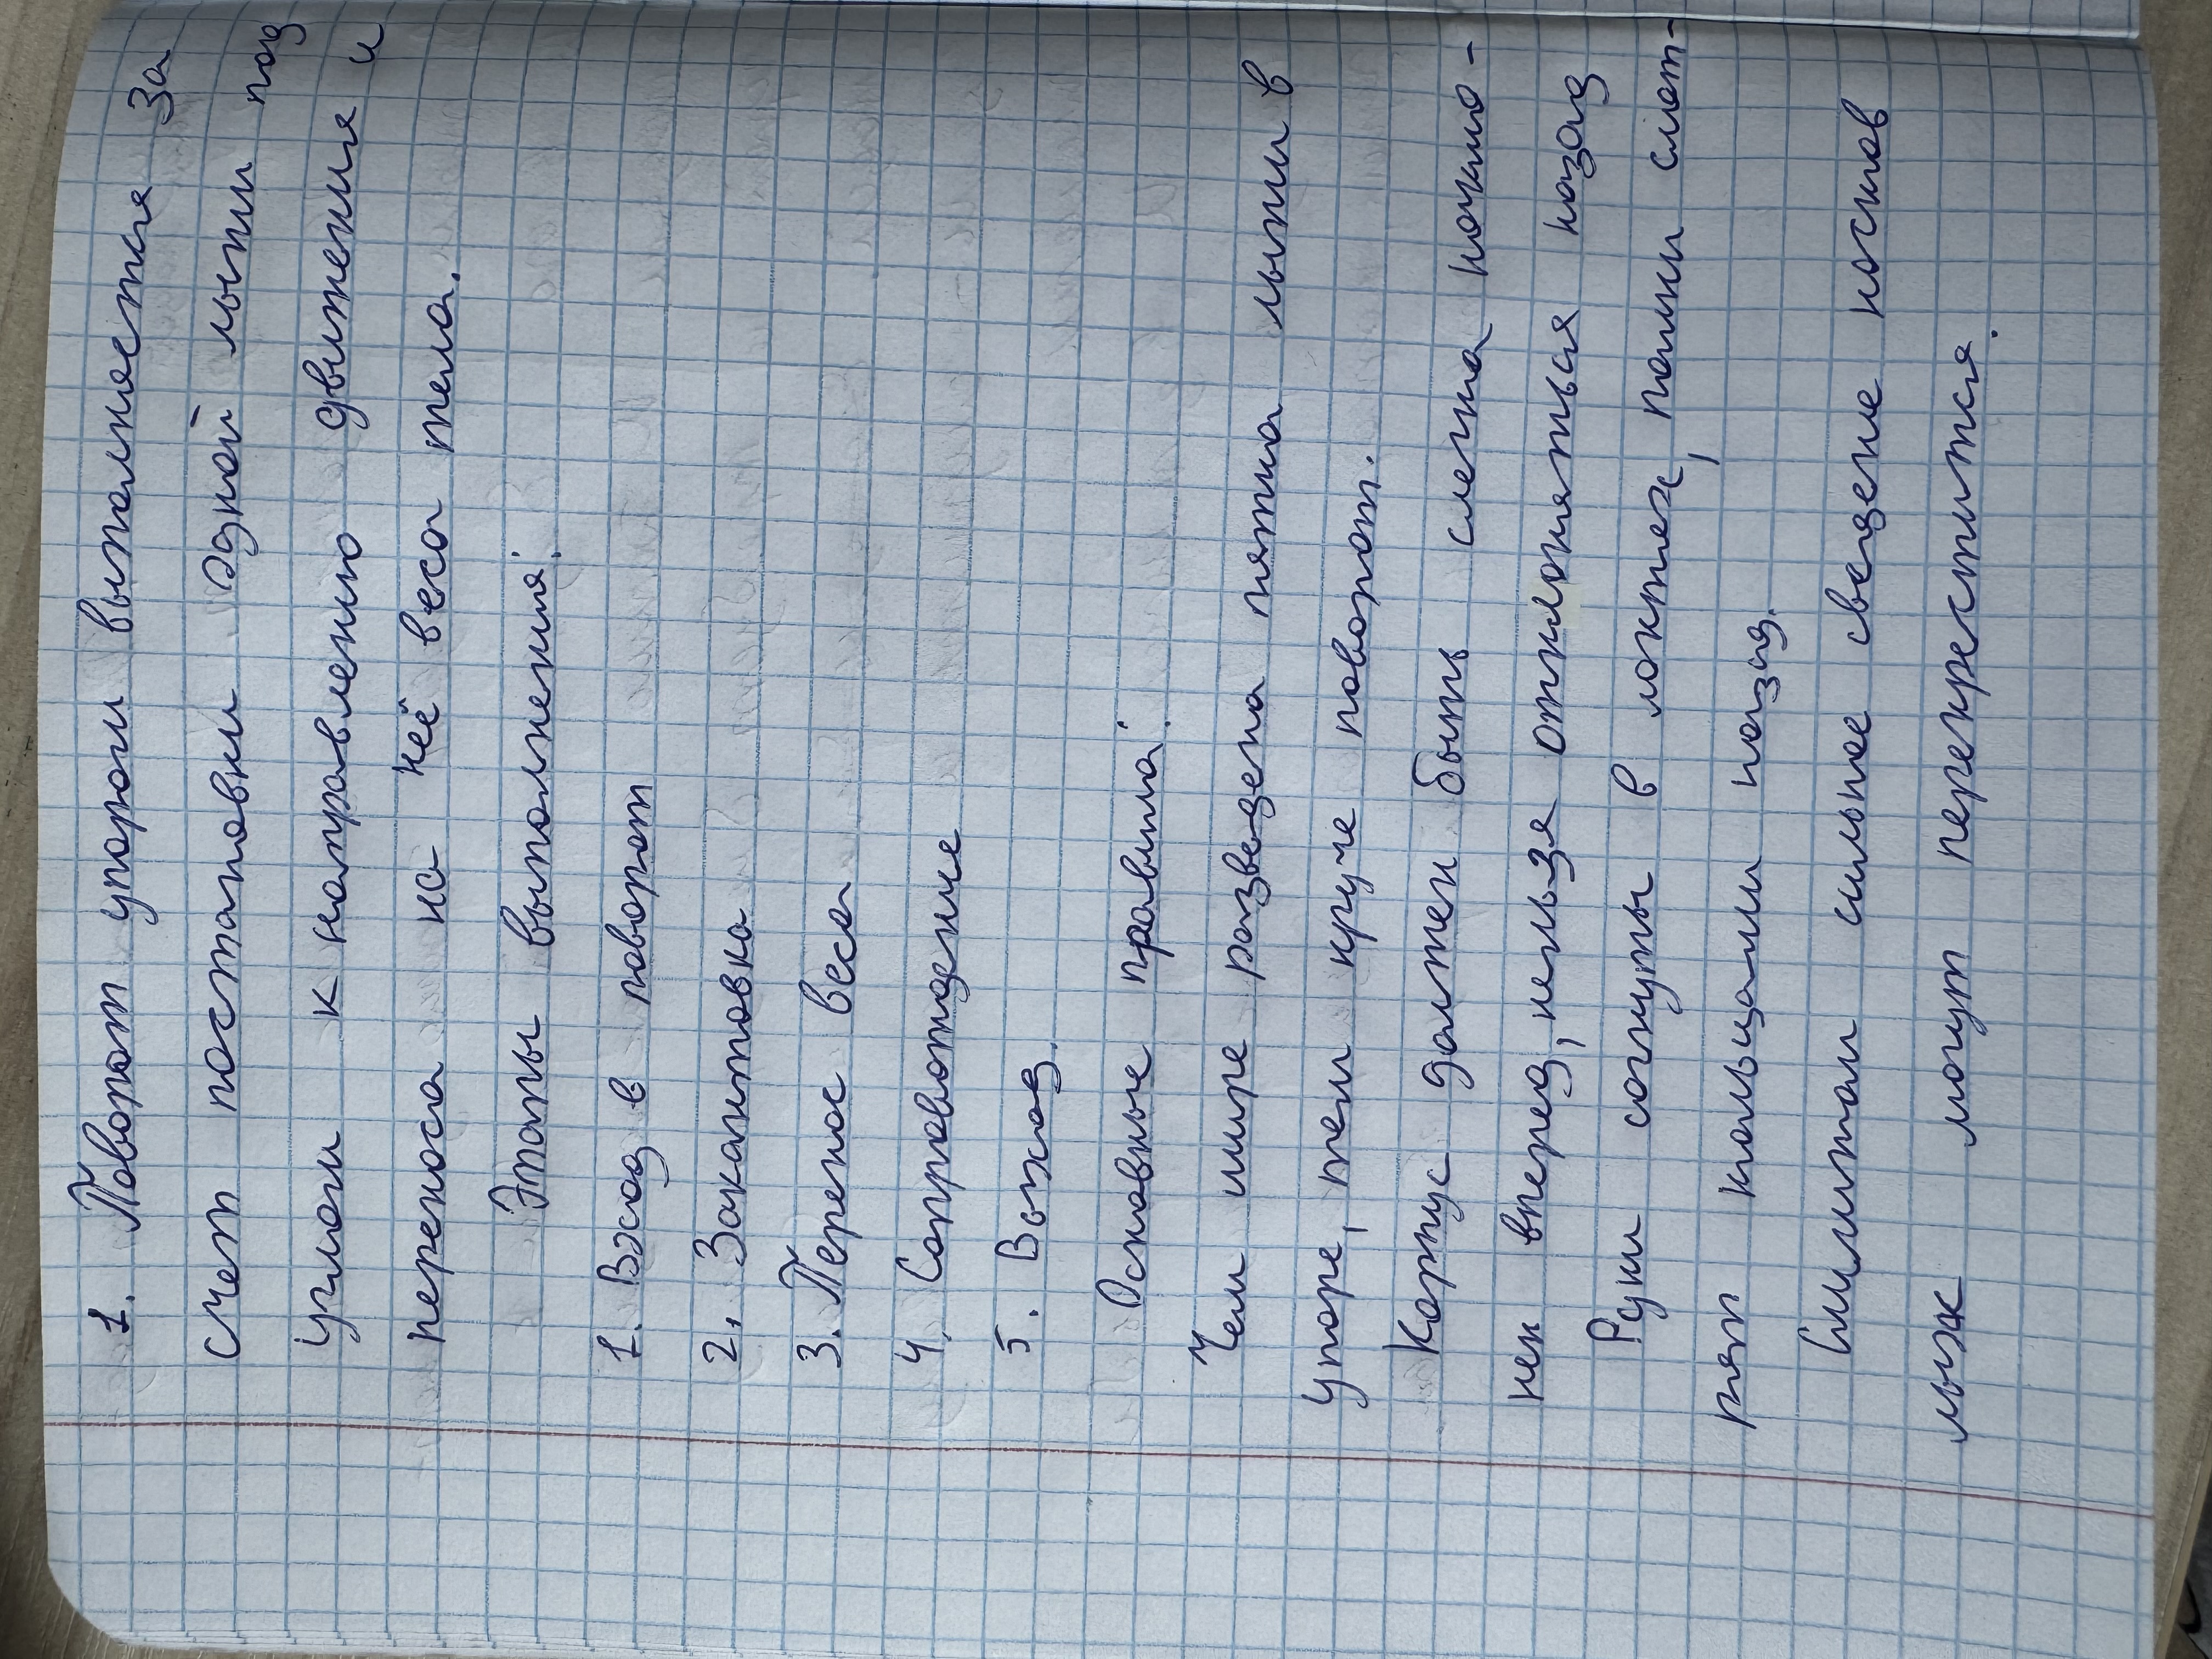 1. Поворот упором выполняется за
счет постановки одной лыжи под
углом к направлению движения и
переноса на неё веса тела.
Этапы выполнения:
1. Вход в поворот
2. Закантовка
3. Перенос веса
4. Сопровождение
5. Выход.
Основные правила:
Чем шире разведена пятка лыжи в
упоре, тем круче поворот.
Корпус должен быть слегка накло-
нен вперед, нельзя отклоняться назад
Руки согнуты в локтях, палки смот-
рят кольцами назад.
Слишком сильное сведение носков
лыж могут перекрестится.